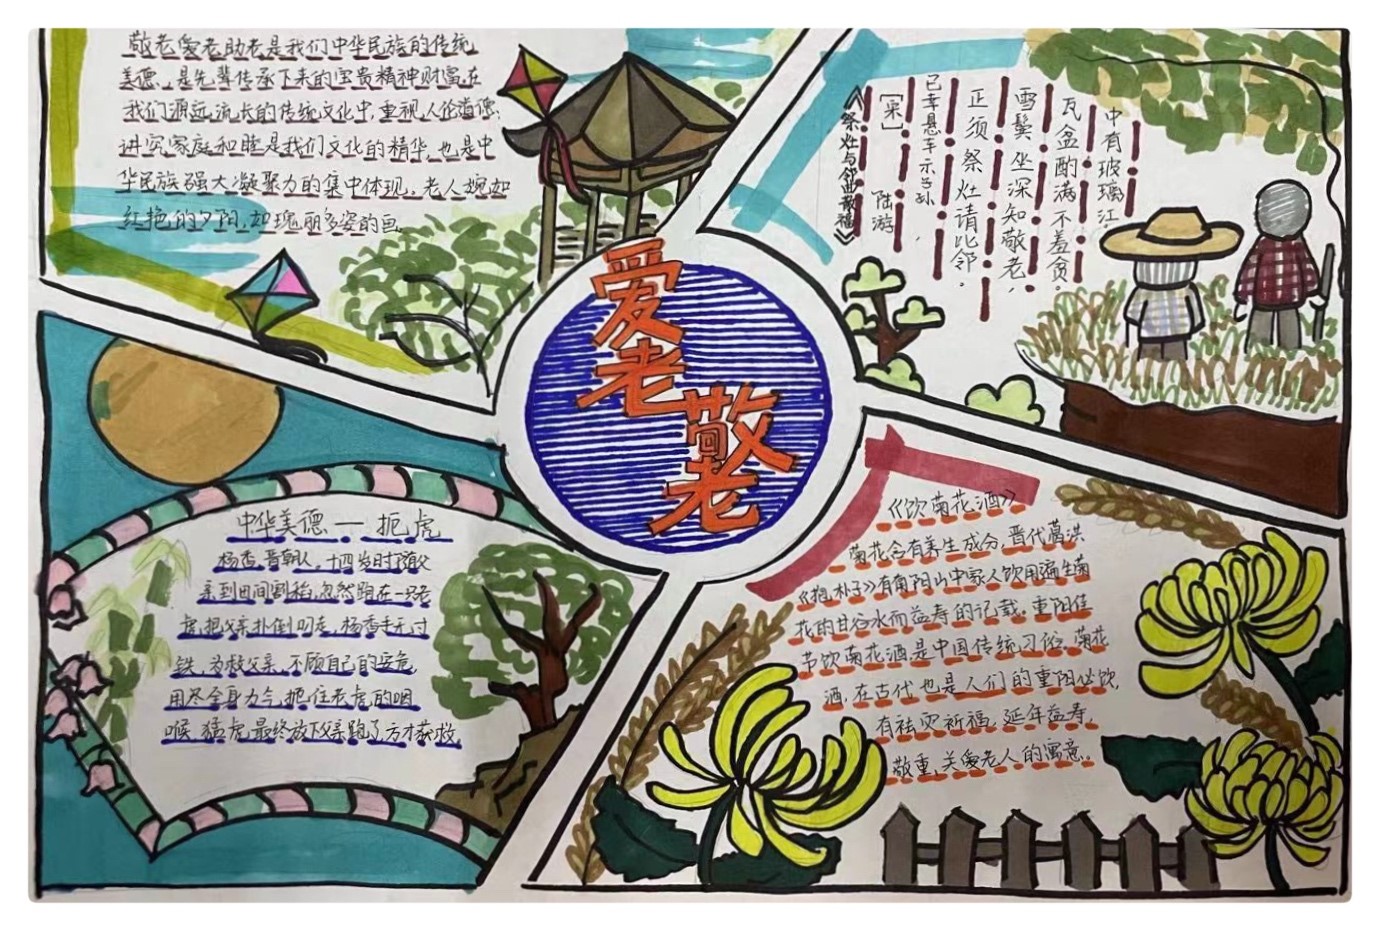 敬老爱老助老是我们中华民族的传统
美德，是先辈传承下来的宝贵精神财富，在
我们源远流长的传统文化中，重视人伦道德、
讲究家庭和睦是我们文化的精华，也是中
华民族强大凝聚力的集中体现。老人宛如
红艳的夕阳，如瑰丽多姿的画
爱老
敬老
《祭灶与邻曲散福》
[宋] 陆游
已幸悬车示子孙，
正须祭灶请比邻。
雪鬓坐深知敬老，
瓦盆酌满不羞贫。
中有玻璃江，
中华美德 — 扼虎
杨香，晋朝人，十四岁时随父
亲到田间割稻，忽然跑在一只老
虎，把父亲扑倒叼走，杨香手无寸
铁，为救父亲，不顾自己的安危
用尽全身力气把住老虎的咽
喉，猛虎最终放下父亲跑了，方才获救。
《饮菊花酒》
菊花含有养生成分，晋代葛洪
《抱朴子》有南阳山中家人饮用遍生菊
花的甘谷水而益寿的记载，重阳佳
节饮菊花酒，是中国传统习俗。菊花
酒，在古代也是人们的重阳必饮，
有祛灾祈福、延年益寿、
敬重、关爱老人的寓意。